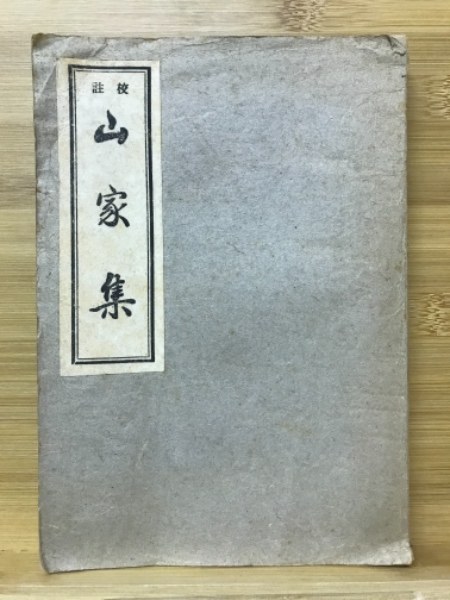 校註
山家集